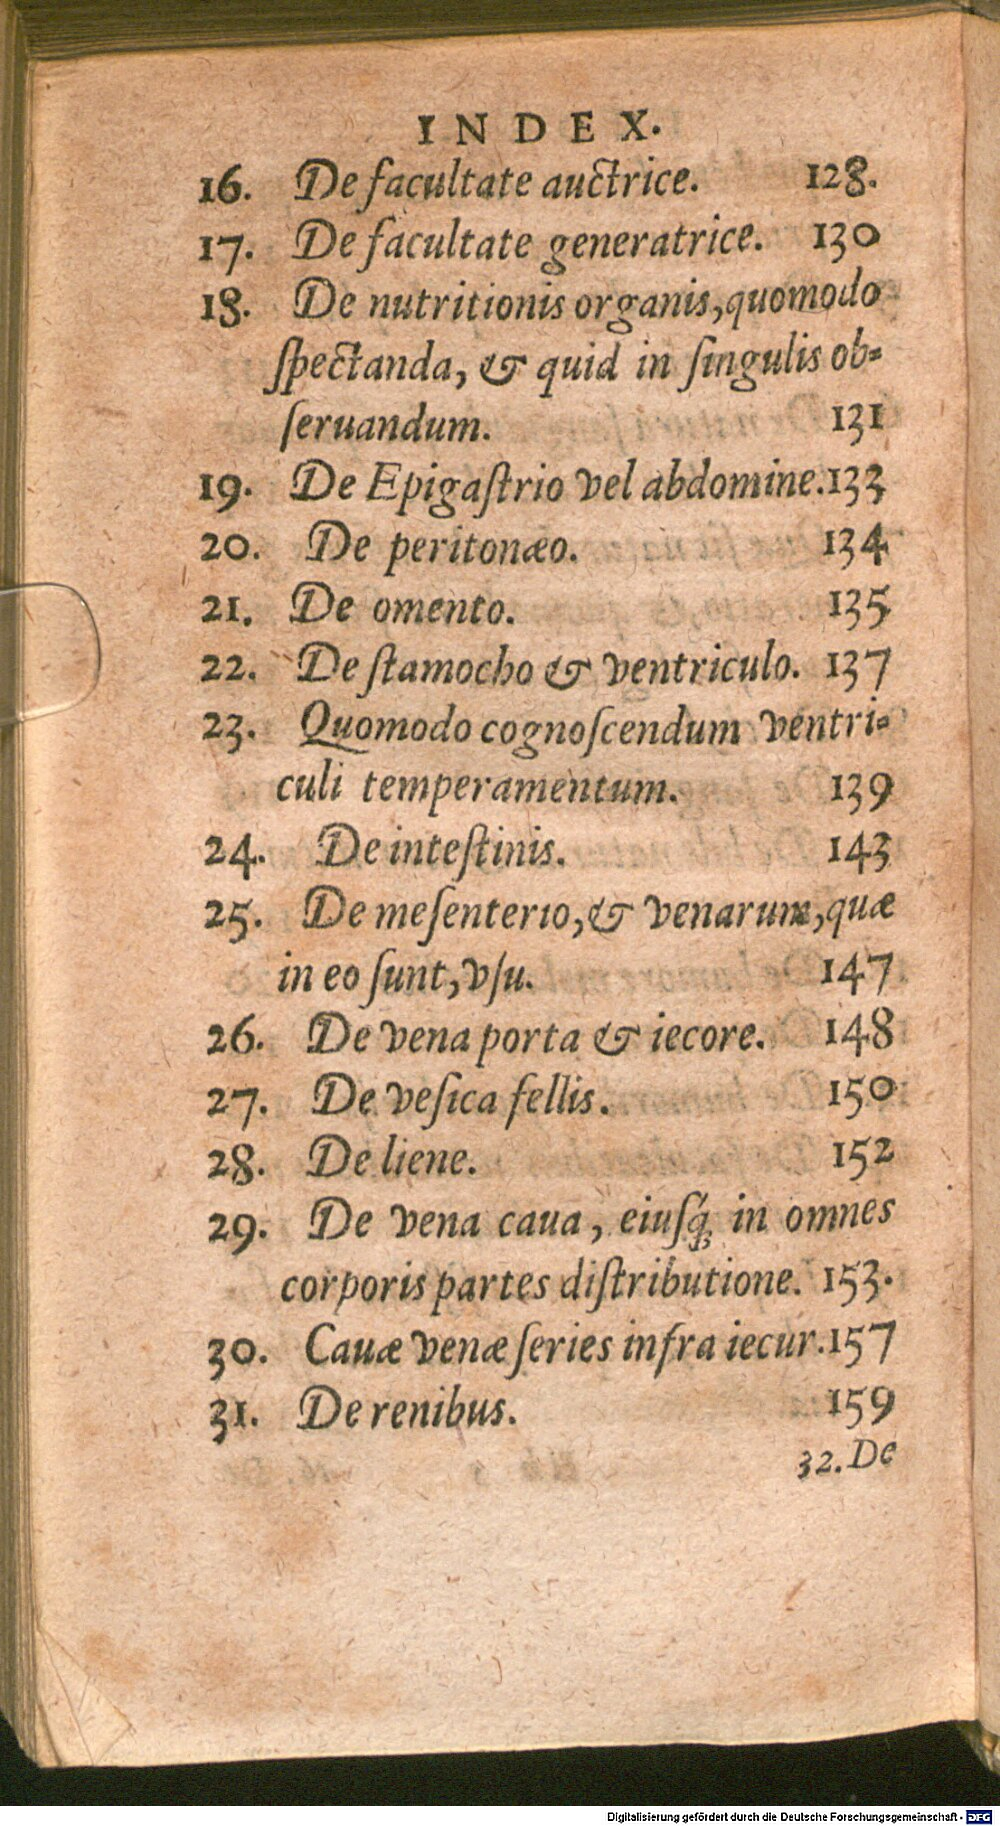 INDEX.
16. De facultate auctrice. 128.
17. De facultate generatrice. 130
18. De nutritionis organis, quomodo
ſpectanda, & quid in ſingulis ob-
ſeruandum. 131
19. De Epigaſtrio vel abdomine. 133
20. De peritonæo. 134
21. De omento. 135
22. De ſtamocho & ventriculo. 137
23. Quomodo cognoſcendum ventri-
culi temperamentum. 139
24. De inteſtinis. 143
25. De meſenterio, & venarum, quæ
in eo ſunt, vſu. 147
26. De vena porta & iecore. 148
27. De veſica fellis. 150
28. De liene. 152
29. De vena caua, eiuſq́ꝫ in omnes
corporis partes diſtributione. 153.
30. Cauæ venæ ſeries infra iecur. 157
31. De renibus. 159
32. De
Digitalisierung gefördert durch die Deutsche Forschungsgemeinschaft - DFG